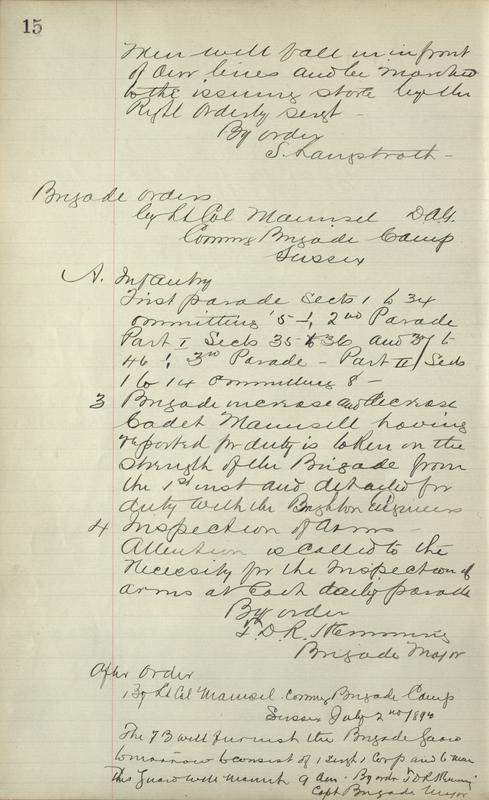 15
Men will fall in in front
of our lines and be marched
to the issuing store by the
Right Orderly Sergt -
By order
S. Langstroth -
Brigade orders
by Lt Col Maunsel DAG.
Commg Brigade Camp
Sussex
A. Infantry
First parade Sects 1 to 34
ommitting 5 2nd Parade
Part I Sects 35 to 36 and 37 to
46 3rd Parade - Part II Sects
1 to 14 ommitting 8 -
3 Brigade increase and decrease
Cadet Maunsell having
reported for duty is taken on the
strength of the Brigade from
the 1st inst and detailed for
duty with the Brighton Engineers
4 Inspection of Arms
Attention is called to the
Necessity for the Inspection of
arms at Each daily parade
By order
D.R. Hemming
Brigade Major
After Order
1 By Lt Col Maunsel Commg Brigade Camp
Sussex July 2nd
The 73 will furnish the Brigade Guard
tomorrow to consist of 1 Sergt 1 Corp and 6 men
This Guard will mount 9 am. By order D R Hemming
Capt Brigade Major